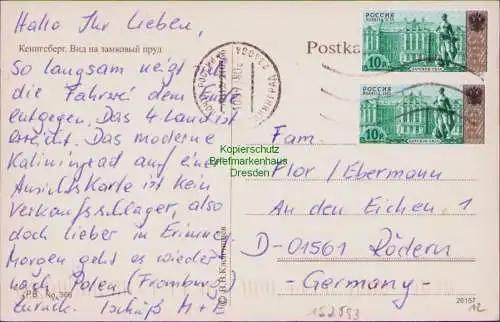 Hallo Ihr Lieben,
Кенигсберг. Вид на замковый пруд
Postka
РОССИЯ
10р
РОССИЯ
10р
So langsam neigt
die Fahrt dem
entgegen. Das 4. Land ist
erreicht. Das moderne
Kaliningrad auf einer
Ansichtskarte ist kein
Verkaufsschlager, also
doch lieber in Erinne
Morgen geht es wieder
nach Polen (Fromburg)
zurück. Tschüß M +
Kopierschutz
Briefmarkenhaus
Dresden
Fam.
Flor / Ebermann
An den Eichen 1
D-01561 Rödern
- Germany -
P.B. No. 566
152593
26157
12